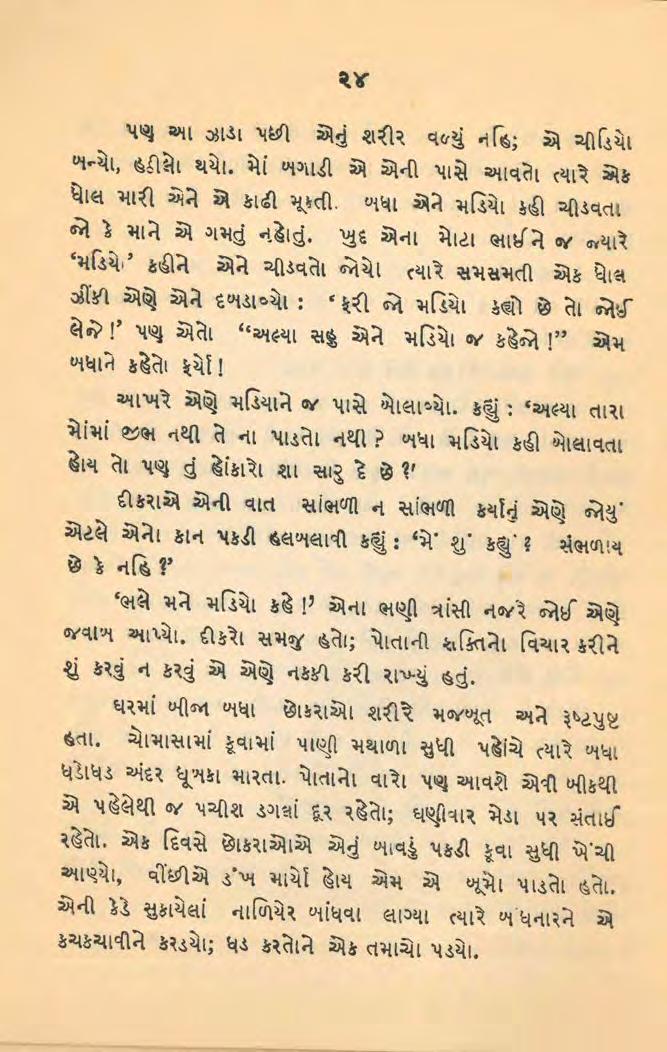 ૨૪
પણ આ ઝાડા પછી એનું શરીર વળ્યું નહિ; એ ચીડિયો
બન્યો, હઠીલો થયો. મોં બગાડી એ એની પાસે આવતો ત્યારે એક
ધોલ મારી એને એ કાઢી મૂકતી. બધા એને મડિયો કહી ચીડવતા
જો કે માને એ ગમતું નહોતું. ખુદ એના મોટા ભાઈને જ જ્યારે
‘મડિયો’ કહીને એને ચીડવતો જોયો ત્યારે સમસમતી એક ધોલ
ઝીંકી એણે એને દબડાવ્યો : ‘ફરી જો મડિયો કહ્યો છે તો જોઈ
લેજે !’ પણ એતો “અલ્યા સહુ એને મડિયો જ કહેજો !” એમ
બધાને કહેતો ફર્યો !
આખરે એણે મડિયાને જ પાસે બોલાવ્યો. કહ્યું : ‘અલ્યા તારા
મોંમાં જીભ નથી તે ના પાડતો નથી ? બધા મડિયો કહી બોલાવતા
હોય તો પણ તું હોંકારો શા સારુ દે છે ?’
દીકરાએ એની વાત સાંભળી ન સાંભળી કર્યાનું એણે જોયું
એટલે એનો કાન પકડી હલબલાવી કહ્યું : ‘મેં શું કહ્યું ? સંભળાય
છે કે નહિ ?’
‘ભલે મને મડિયો કહે !’ એના ભણી ત્રાંસી નજરે જોઈ એણે
જવાબ આપ્યો. દીકરો સમજુ હતો; પોતાની શક્તિનો વિચાર કરીને
શું કરવું ન કરવું એ એણે નક્કી કરી રાખ્યું હતું.
ઘરમાં બીજા બધા છોકરાઓ શરીરે મજબૂત અને રૂષ્ટપુષ્ટ
હતા. ચોમાસામાં કૂવામાં પાણી મથાળા સુધી પહોંચે ત્યારે બધા
ધડોધડ અંદર ધૂબકા મારતા. પોતાનો વારો પણ આવશે એવી બીકથી
એ પહેલેથી જ પચીશ ડગલાં દૂર રહેતો; ઘણીવાર મેડા પર સંતાઈ
રહેતો. એક દિવસે છોકરાઓએ એનું બાવડું પકડી કૂવા સુધી ખેંચી
આણ્યો, વીંછીએ ડંખ માર્યો હોય એમ એ બૂમો પાડતો હતો.
એની કેડે સુકાયેલાં નાળિયેર બાંધવા લાગ્યા ત્યારે બંધનારને એ
કચકચાવીને કરડયો; ધડ કરતોને એક તમાચો પડયો.